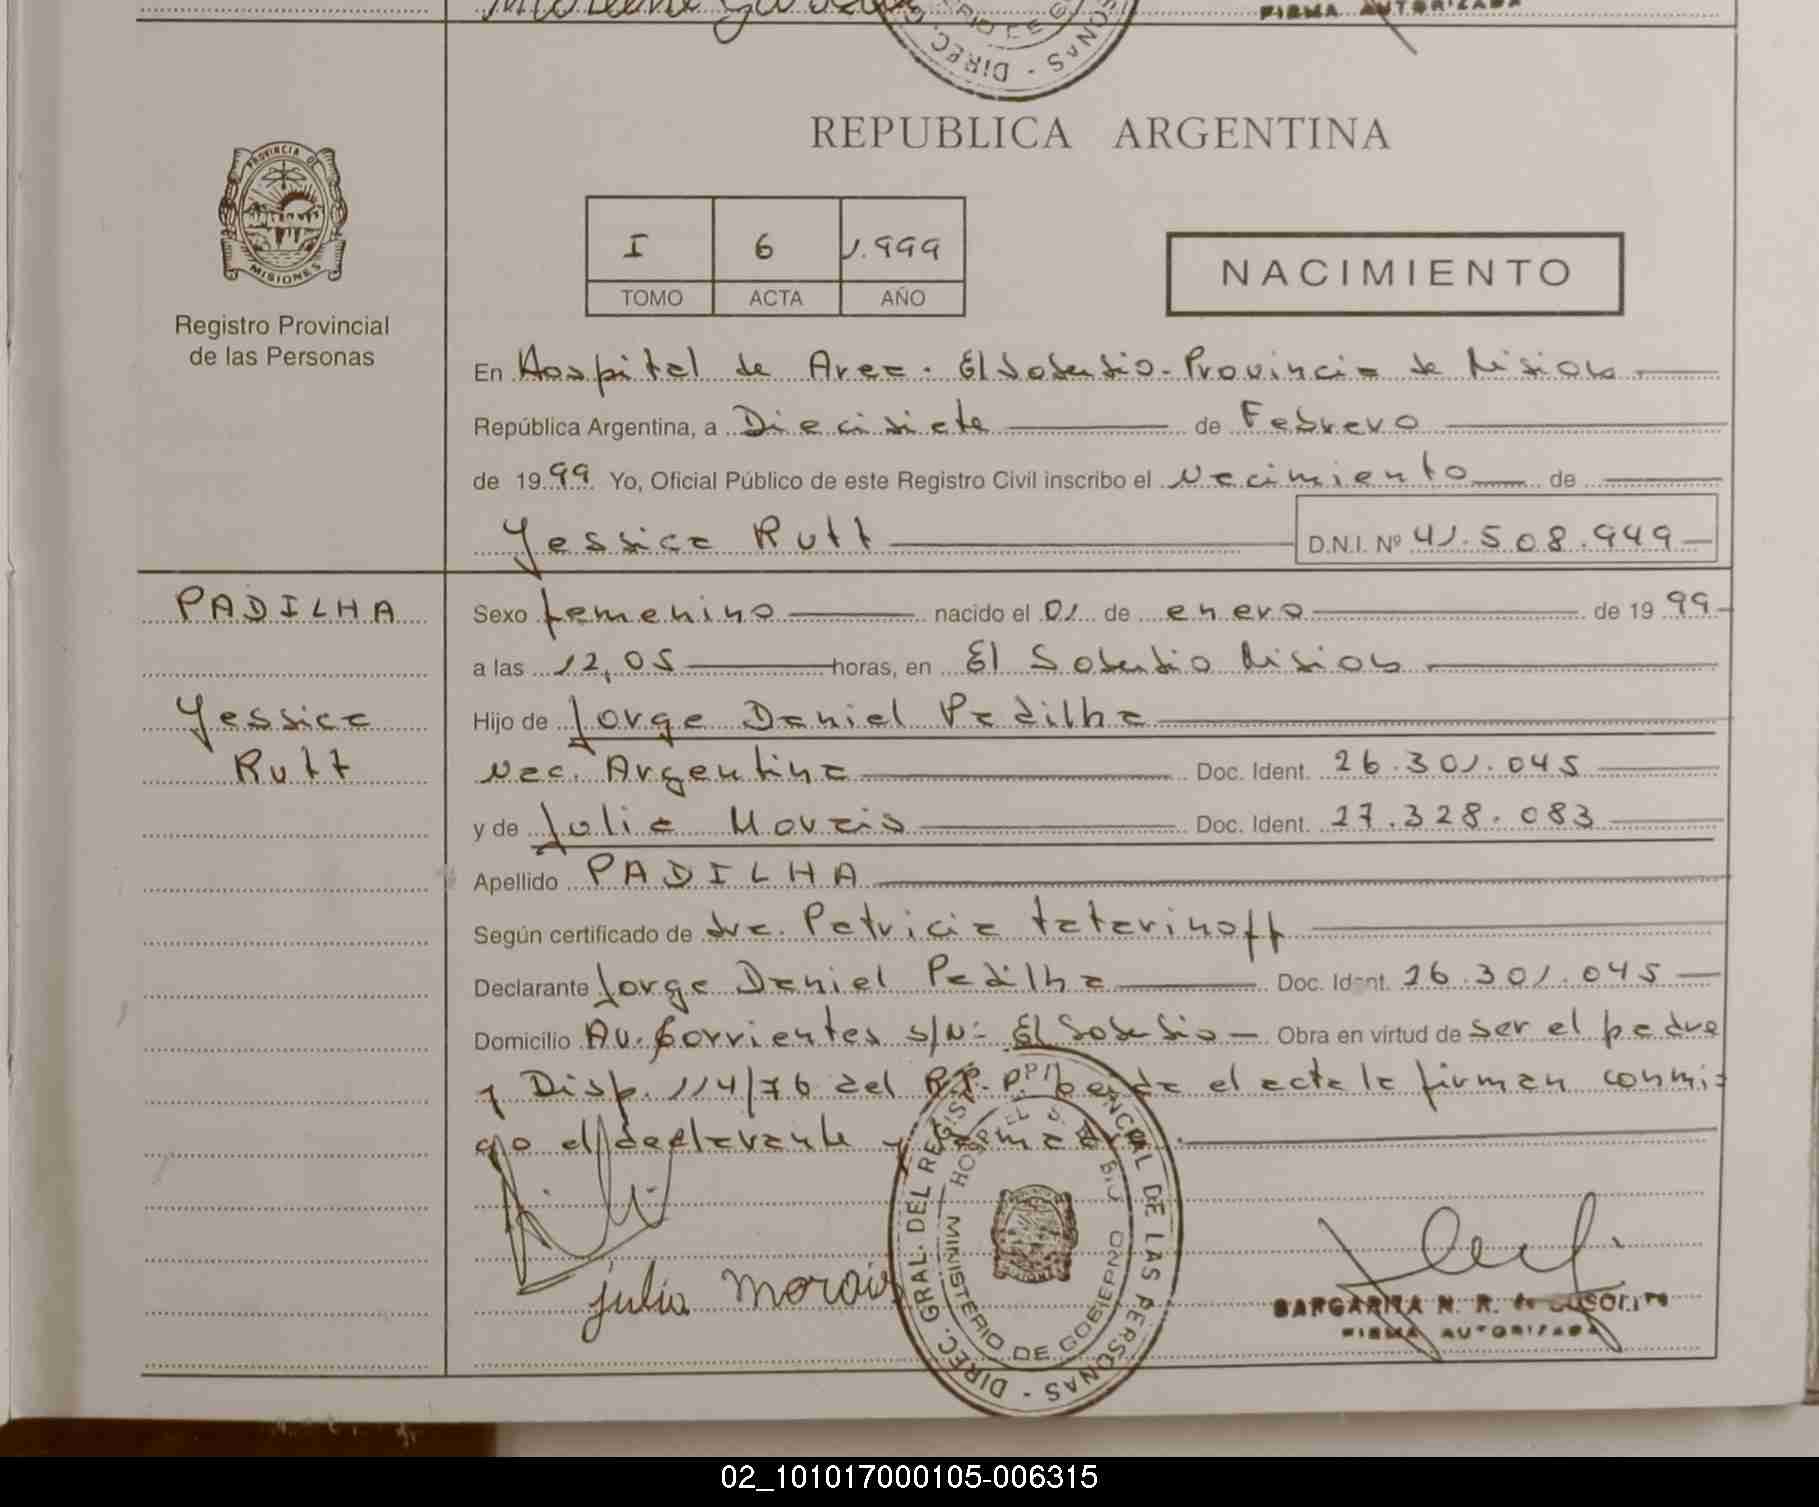 FIRMA AUTORIZADA
DIREC.
PROVINCIA DE
MISIONES
Registro Provincial
de las Personas
REPUBLICA ARGENTINA
I 6 1.999
TOMO ACTA AÑO
NACIMIENTO
En Hospital de Area. El Soberbio. Provincia de Misiones
República Argentina, a Diecisiete de Febrero
de 1999 Yo, Oficial Público de este Registro Civil inscribo el Nacimiento de
Yessica Rutt D.N.I. Nº 41.508.949
PADILHA
Yessica
Rutt
Sexo femenino nacido el 01 de enero de 1999
a las 12,05 horas, en El Soberbio Misiones
Hijo de Jorge Daniel Padilha
Nac. Argentina Doc. Ident. 26.301.045
y de Julia Morais Doc. Ident. 27.328.083
Apellido PADILHA
Según certificado de dra. Patricia tatarinoff
Declarante Jorge Daniel Padilha Doc. Ident. 26.301.045
Domicilio Av. Corrientes s/Nº El Soberbio Obra en virtud de ser el padre
y Disp. 114/76 del R.P.P. el acta la firman conmi-
go el declarante y
julia Morais
DIREC. GRAL. DEL REGISTRO PROVINCIAL DE LAS PERSONAS
MINISTERIO DE GOBIERNO
MARGARITA N. R. de
FIRMA AUTORIZADA
02_101017000105-006315